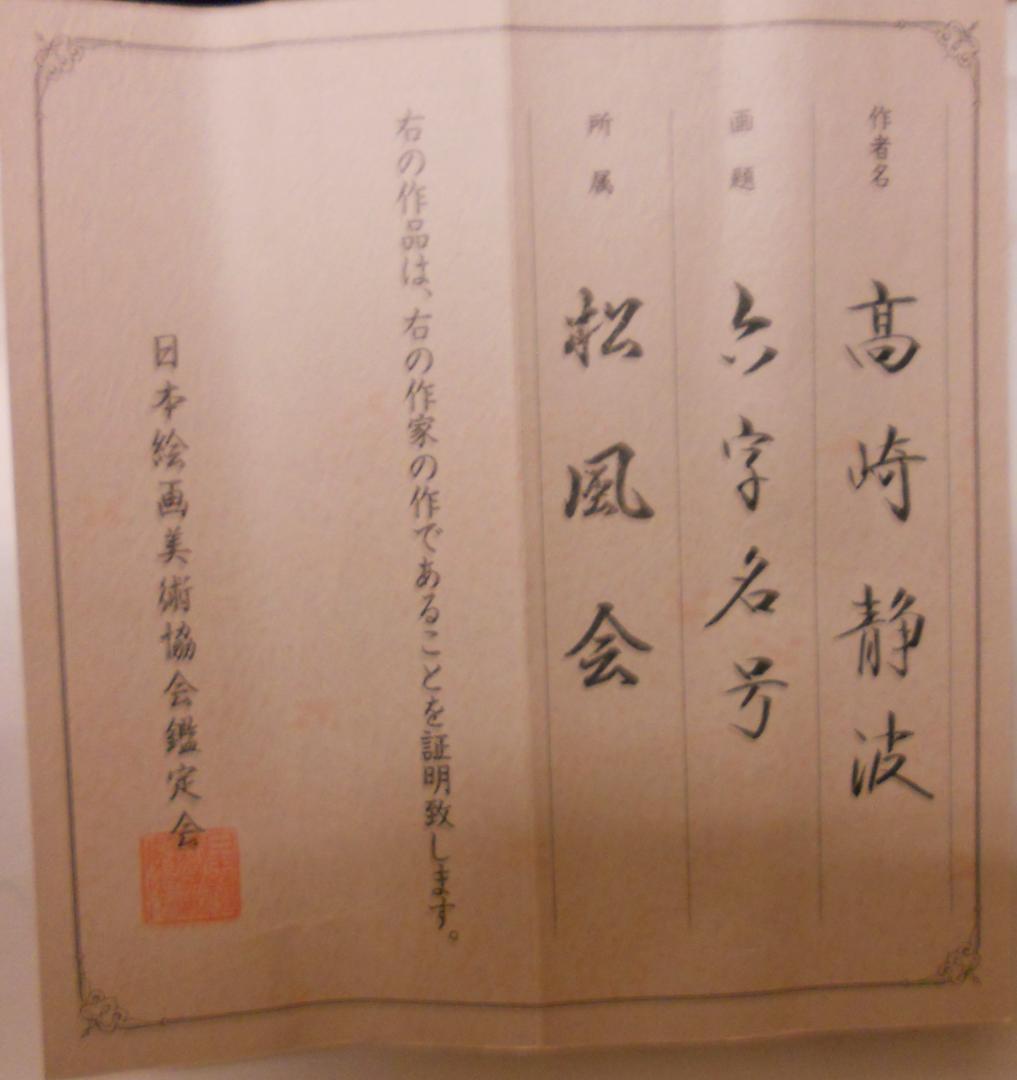 作者名 高崎静波
画題 六字名号
所属 松風会
右の作品は、右の作家の作であることを証明致します。
日本絵画美術協会鑑定会